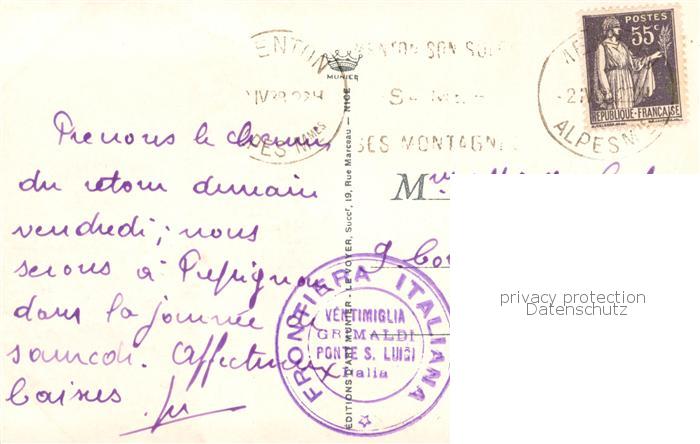 Prenons le chemin
du retour demain
vendredi; nous
serons à Perpignan
dans la journée de
samedi. Affectueux
baisers
MENTON
MENTON SON SOLEIL
SA MER
SES MONTAGNES
ALPES MMES
MUNIER
EDITIONS D'ART MUNIER - LE VOYER, Succr, 19, Rue Marceau - NICE
POSTES
55c
REPUBLIQUE-FRANÇAISE
ALPES M
FRONTIERA ITALIANA
VENTIMIGLIA
GRIMALDI
PONTE S. LUIGI
Italia
privacy protection
Datenschutz